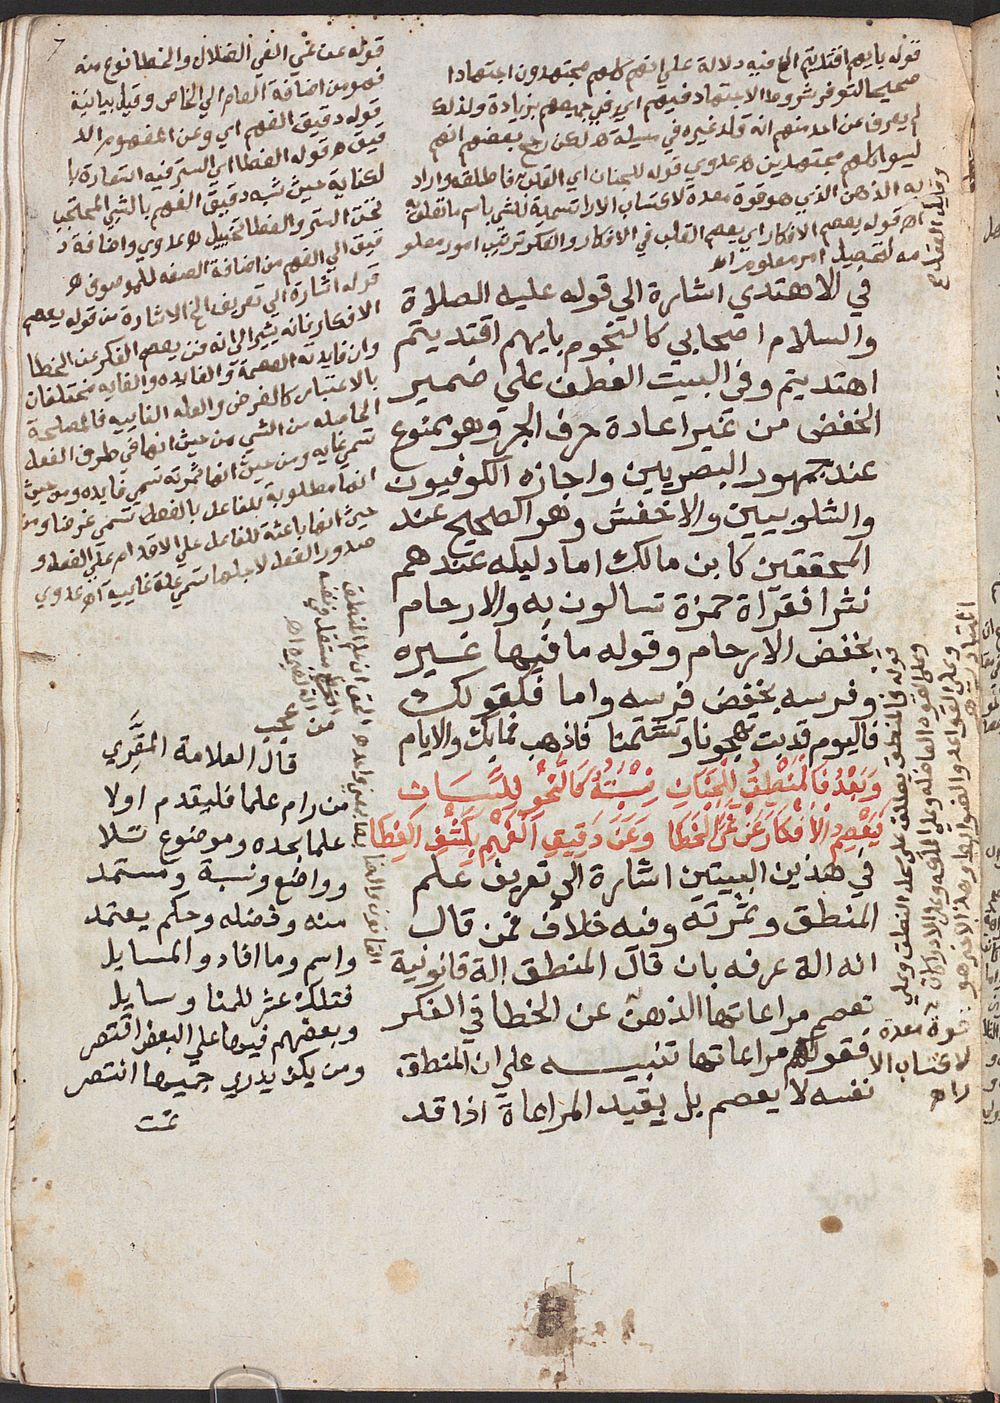 قوله بايهم اقتديتم الخ فيه دلالة علي انهم كلهم مجتهدون اجتهادا
صحيحا لتوفر شروط الاجتهاد فيهم اي في جميعهم بزيادة ولذلك
لم يعرف عن احد منهم انه قلد غيره في مسيلة لكن رجح بعضهم انهم
ليسوا كلهم مجتهدين اه عدوي قوله للجنان اي القلب فاطلقه واراد
به الذهن الذي هو قوة معدة لاكتساب الارا تسمية للشي باسم ما تعلق به
اه قوله يعصم الافكار اي يعصم القلب في الافكار والفكر ترتيب امور معلو
مه لتحصيل امر معلوم اه
في الاهتدي اشارة الي قوله عليه الصلاة
والسلام اصحابي كالنجوم بايهم اقتديتم
اهتديتم وفي البيت العطف علي ضمير
الخفض من غير اعادة حرف الجر وهو ممنوع
عند جمهور البصريين واجازه الكوفيون
والشلوبيين والاخفش وهو الصحيح عند
المحققين كابن مالك اما دليله عندهم
نثرا فقرآة حمزة تسالون به والارحام
بخفض الارحام وقوله ما فيها غيره
وفرسه بخفض فرسه واما فكقولك
فاليوم قدبت تهجونا وتشتمنا فاذهب فمابك والايام
وَبَعْدُ فَالْمَنْطِقُ لِلْجَنَانِ نِسْبَتُهُ كَالنَّحْوِ لِلِّسَانِ
فَيَعْصِمُ الْأَفْكَارَ عَنْ غَيِّ الْخَطَا وَعَنْ دَقِيقِ الْفَهْمِ يَكْشِفُ الْغِطَا
في هذين البيتين اشارة الي تعريف علم
المنطق وثمرته وفيه خلاف فمن قال
انه الة عرفه بان قال المنطق الة قانونية
تعصم مراعاتها الذهن عن الخطا في الفكر
فقولهم مراعاتها تنبيه علي ان المنطق
نفسه لا يعصم بل بقيد المراعاة اذا قد
قوله عن غي الغي الضلال والخطا نوع منه
فهو من اضافة العام الي الخاص وقيل بيانية
قوله دقيق الفهم اي وعن المفهوم الد
قيق اه قوله الغطا اي الستر فيه استعارة با
لكناية حيث شبه دقيق الفهم بالشي المحتجب
تحت الستر والغطا تخييل اه عدوي واضافة د
قيق الي الفهم من اضافة الصفه للموصوف اه
قوله اشارة الي تعريف الخ الاشارة من قوله يعصم
الافكار فانه يشير الي انه فن يعصم الفكر عن الخطا
وان فايدته العصمة والفايده والغايه مختلفان
بالاعتبار كالغرض والعله الغاييه فالمصلحة
الحاصله من الشي من حيث انها في طرف الفعل
تسمي غايه ومن حيث انها ثمرته تسمي فايده ومن حيث
انها مطلوبة للفاعل بالفعل تسمي غرضا ومن
حيث انها باعثة للفاعل علي الاقدام علي الفعل و
صدور الفعل لاجلها تسمي علة غاييه اه عدوي
من عجب
قال العلامة المقَّرِي
من رام علما فليقدم اولا
علما بحده وموضوع تلا
وواضع ونسبة ومستمد
منه وفضله وحكم يعتمد
واسم وما افاد والمسايل
فتلك عشر للمنا وسايل
وبعضهم فيها علي البعض اقتصر
ومن يكن يدري جميعها انتصر
تمت
قوله فالمنطق يطلق علي محله النطق وعلي
وعلي القوة العاقله وعلي الملكه وعلي الادراكات
قوة معدة
لاكتساب الا
را اه